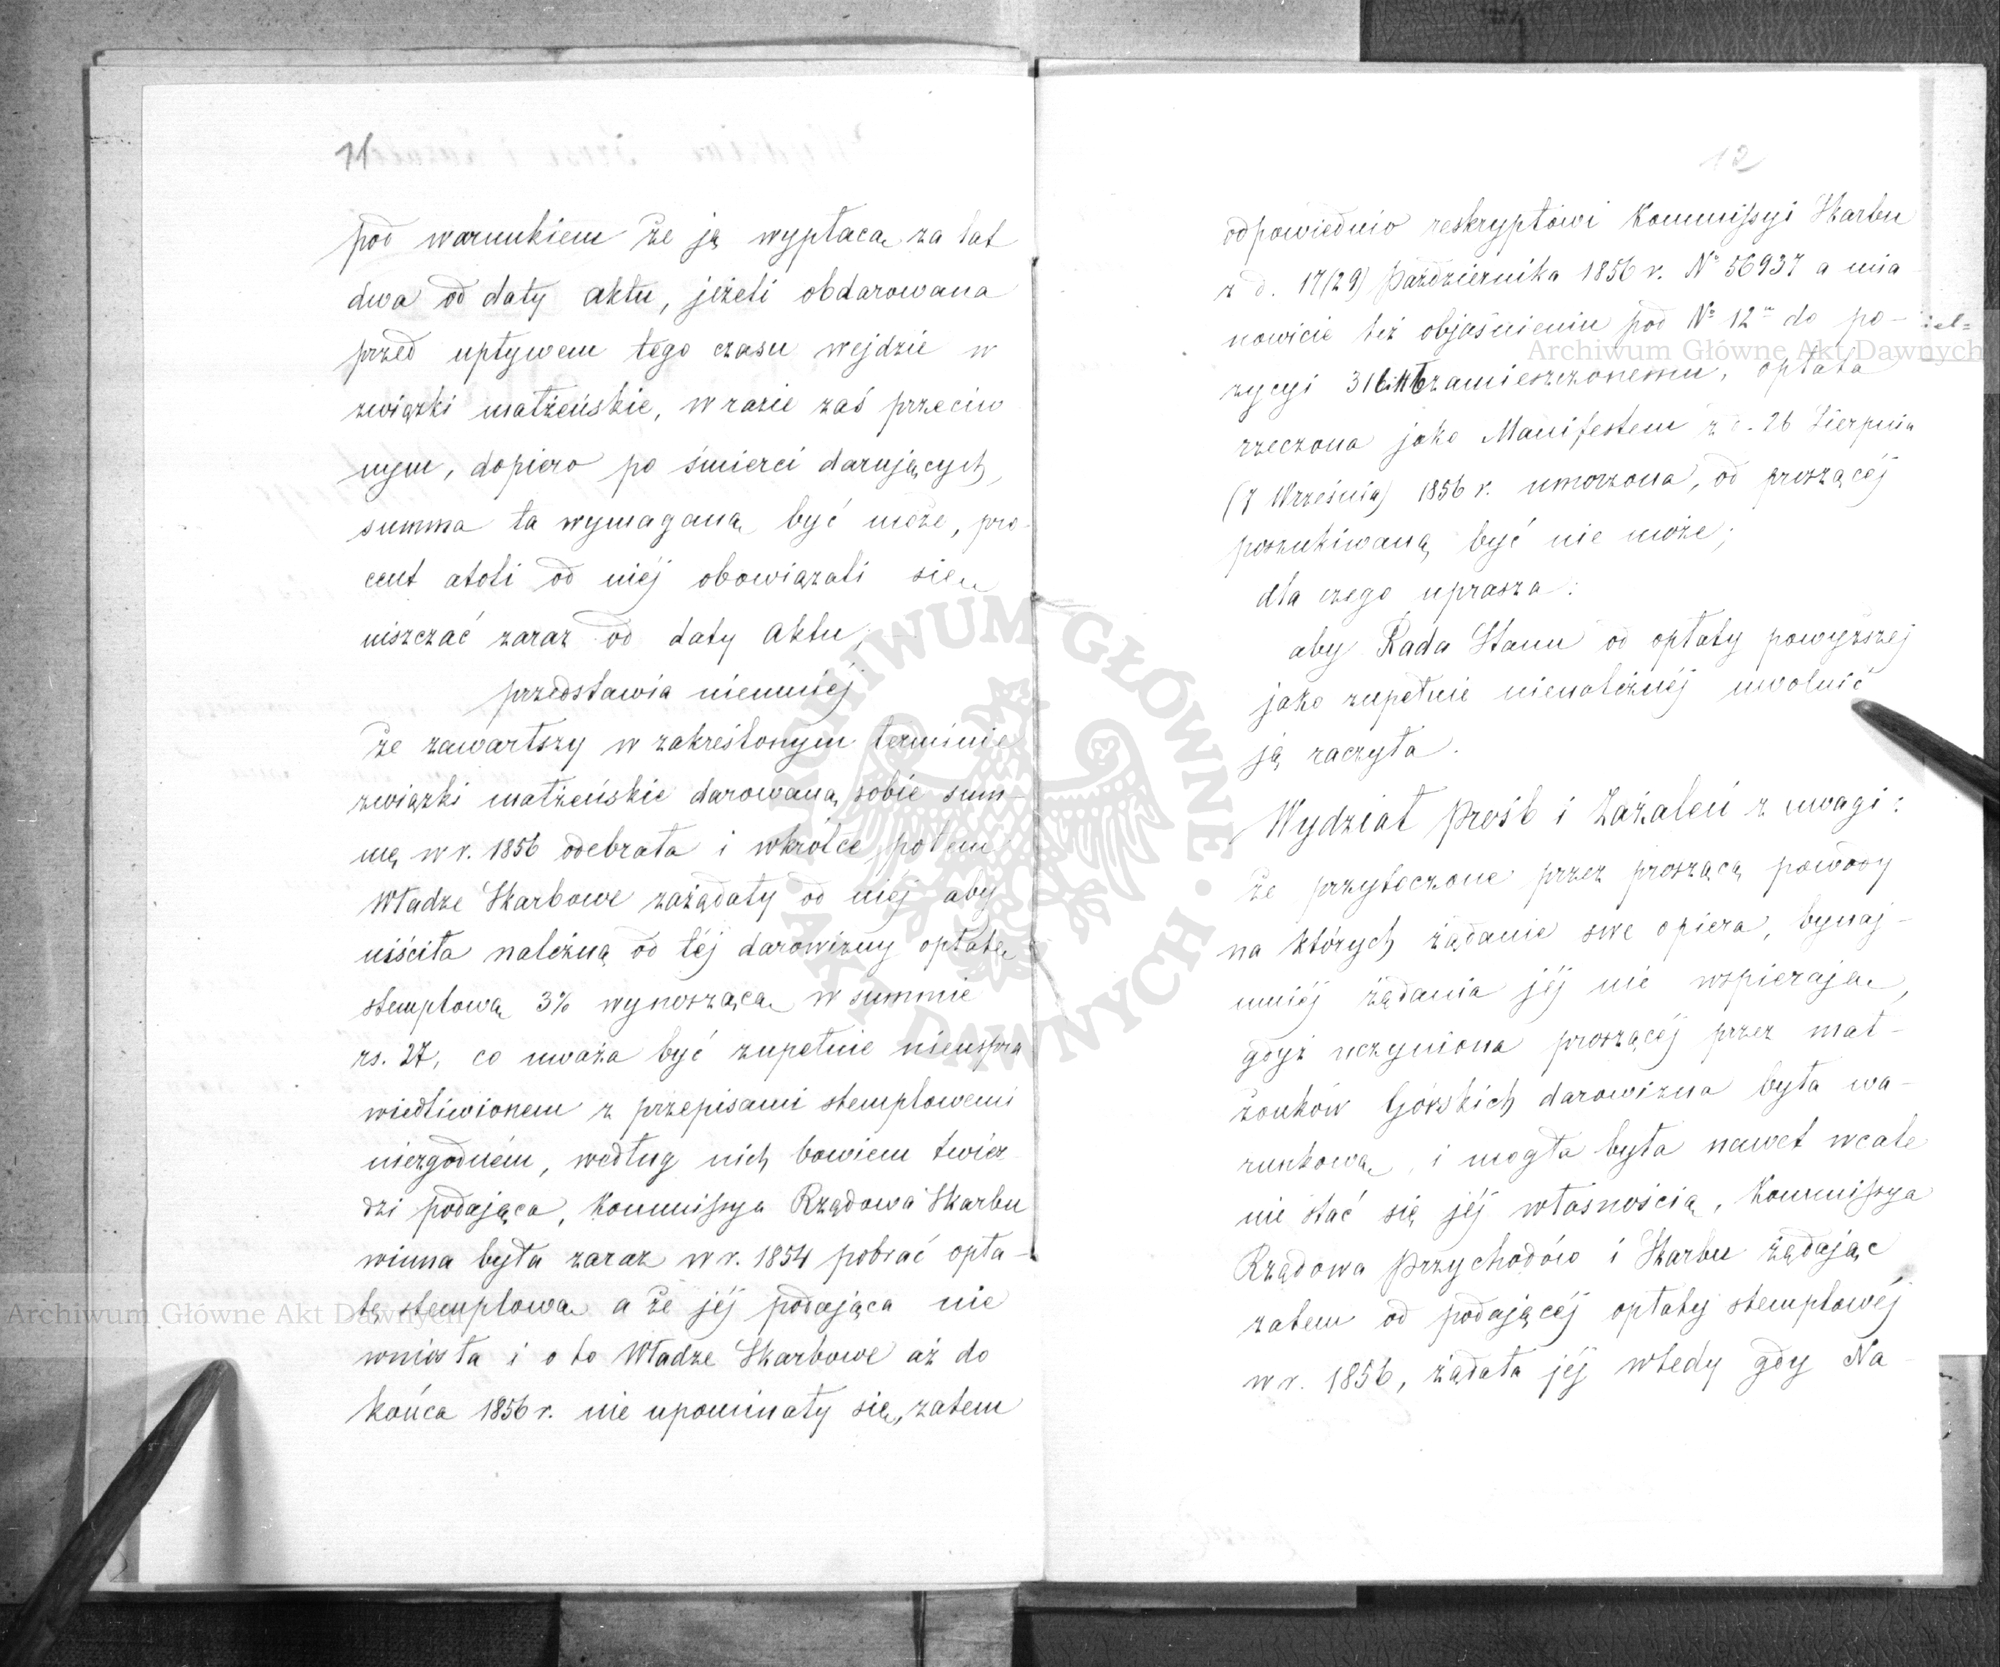 11
pod warunkiem że ją wypłacą za lat
dwa od daty aktu, jeżeli obdarowana
przed upływem tego czasu wejdzie w
związki małżeńskie, w razie zaś przeciw
nym, dopiero po śmierci darujących,
summa ta wymaganą być może, pro-
cent atoli od niéj obowiązali się
uiszczać zaraz od daty aktu;
przedstawia niemniéj
że zawarłszy w zakreślonym terminie
związki małżeńskie darowaną sobie sum-
mę w r. 1856 odebrała i wkrótce potem
Władze Skarbowe zażądały od niéj aby
uiściła należną od téj darowizny opłatę
stemplową 3% wynoszącą w summie
rs. 27, co uważa być zupełnie nieuspra
wiedliwionem z przepisami stemplowemi
niezgodném, według nich bowiem twier
dzi podająca, Kommissya Rządowa Skarbu
winna była zaraz w r. 1854 pobrać opła-
tę stemplową a że jéj podająca nie
wniosła i o to Władze Skarbowe aż do
końca 1856 r. nie upominały się, zatem
12
odpowiednio reskryptowi Kommissyi Skarbu
z d. 17(29) Października 1856 r. Nº 56937 a mia
nowicie téż objaśnieniu pod Nº 12 do po-
zycyi 31 zamieszczonemu, opłata
rzeczona jako Manifestem z d. 26 Sierpnia
(7 Września) 1856 r. umorzona, od proszącéj
poszukiwaną być nie może;
dla czego uprasza:
aby Rada Stanu od opłaty powyższej
jako zupełnie nienależnéj uwolnić
ją raczyła.
Wydział Prośb i Zażaleń z uwagi:
że przytoczone przez proszącą powody
na których żądanie swe opiera, bynaj-
mniéj żądania jéj nie wspierają,
gdyż uczyniona proszącéj przez mał-
żonków Górskich darowizna była wa-
runkową, i mogła była nawet wcale
nie stać się jéj własnością, Kommissya
Rządowa Przychodów i Skarbu żądając
zatem od podającéj opłaty stemplowéj
w r. 1856, żądała jéj wtedy gdy Na
Archiwum Główne Akt Dawnych
Archiwum Główne Akt Dawnych
ARCHIWUM GŁÓWNE • AKT DAWNYCH •